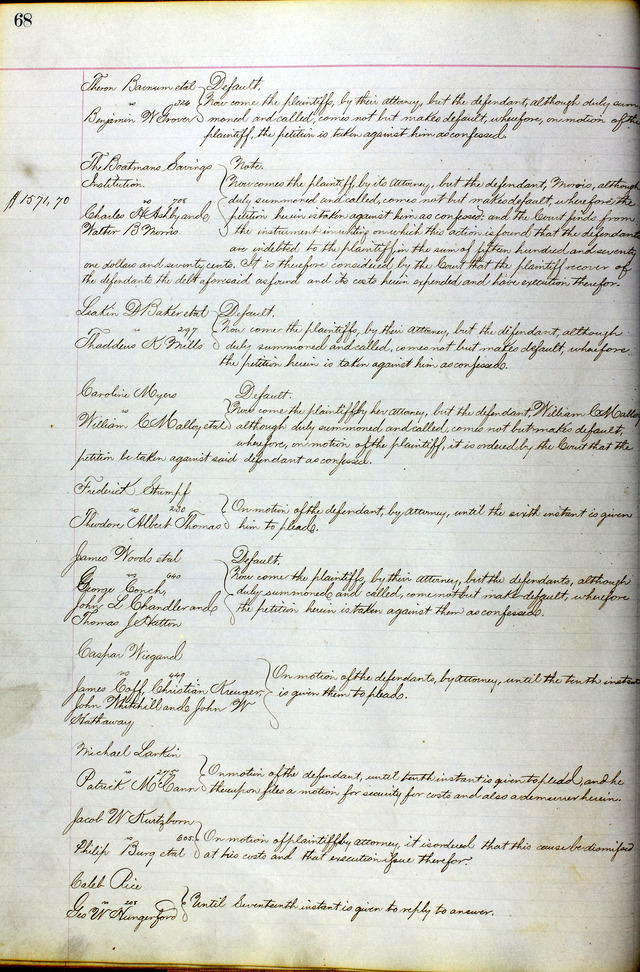 68
Theron Barnum et al } Default.
vs 326 Now come the plaintiffs, by their attorney, but the defendant, although duly sum
Benjamin W Grover moned and called, comes not but makes default, wherefore, on motion of the
plaintiff, the petition is taken against him as confessed.
The Boatmans Savings } Note.
Institution. Now comes the plaintiff, by its Attorney, but the defendant, Morris, although
$1571,70 vs 708 duly summoned and called, comes not but makes default, wherefore the
Charles H Ashby and petition herein is taken against him as confessed: and the Court finds from
Walter B Morris the instrument in writing on which this action is found that the defendants
are indebted to the plaintiff in the sum of fifteen hundred and seventy
one dollars and seventy cents. It is therefore considered by the Court that the plaintiff recover of
the defendants the debt aforesaid as found and its costs herein expended and have execution therefor.
Leakin D Baker et al } Default.
vs 297 Now come the plaintiffs, by their Attorney, but the defendant, although
Thaddeus K Mills duly summoned and called, comes not but makes default, wherefore
the petition herein is taken against him as confessed.
Caroline Myers Default.
vs Now come the plaintiff by her Attorney, but the defendant, William C Malloy
William C Malloy et al } although duly summoned and called, comes not but makes default,
wherefore, on motion of the plaintiff, it is ordered by the Court that the
petition be taken against said defendant as confessed.
Frederick Stumpf
vs 230 } On motion of the defendant, by attorney, until the sixth instant is given
Theodore Albert Thomas him to plead.
James Woods et al Default.
vs 640 Now come the plaintiffs, by their attorney, but the defendants, although
George Conch, duly summoned and called, come not but make default, wherefore
John L Chandler and } the petition herein is taken against them as confessed.
Thomas J Hatton
Caspar Wiegand
vs 449 } On motion of the defendants, by attorney, until the tenth instant
James Goff, Christian Kreuger, is given them to plead.
John Whitehill and John W
Hathaway
Michael Larkin
vs 275 } On motion of the defendant, until tenth instant is given to plead, and he
Patrick McCann thereupon files a motion for security for costs and also a demurrer herein.
Jacob W Kurtzborn
vs 605 } On motion of plaintiff by attorney, it is ordered that this cause be dismissed
Philip Burg et al at his costs and that execution issue therefor.
Caleb Rice
vs 208 } Until Seventeenth instant is given to reply to answer.
Geo W Hungerford